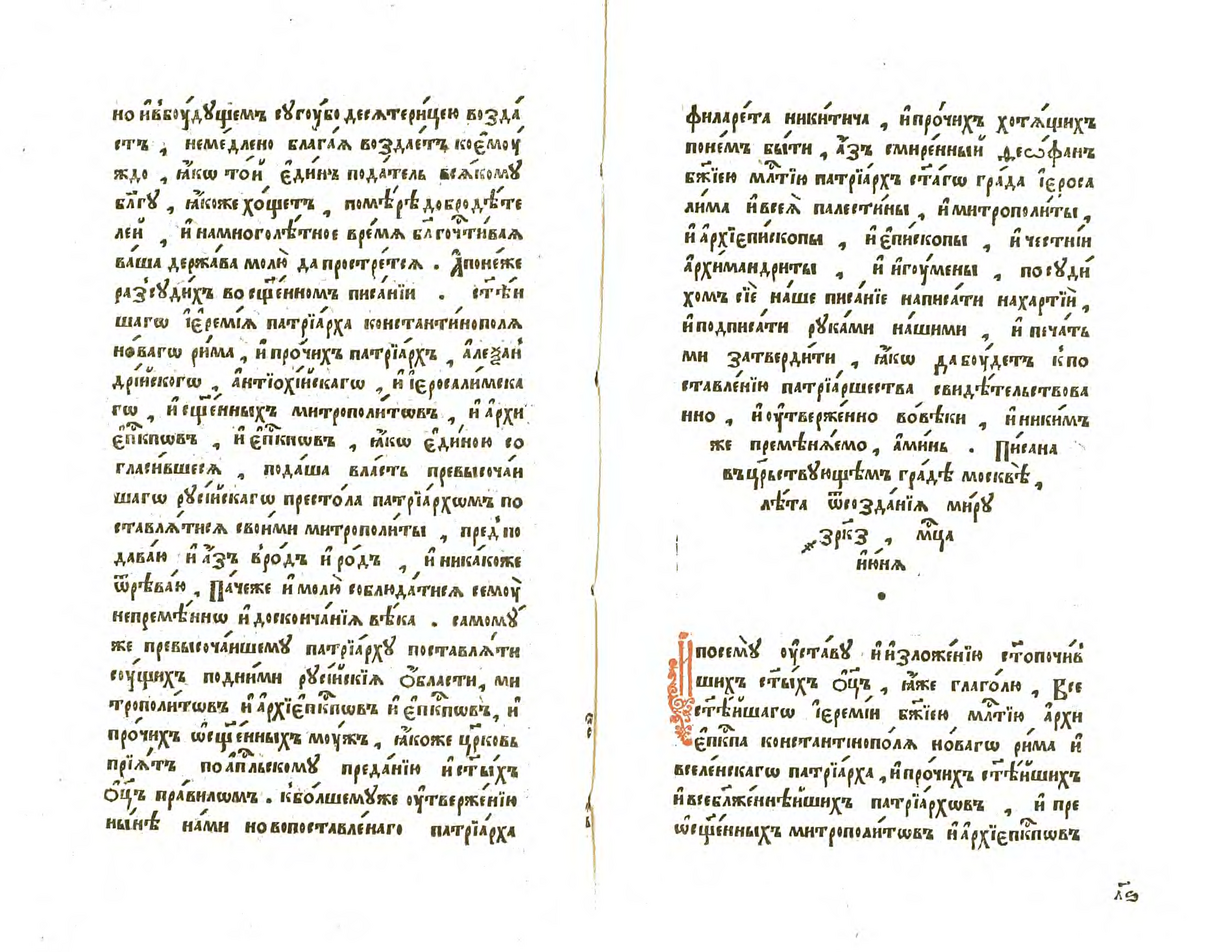 но и҆вбоу́дꙋщемъ сꙋгоу́бо десѧтери́цею возда́
стъ , неме́длено блага́ѧ воздае́тъ коемоу́
ждо , ꙗ҆́кѡ то́й є҆ди́нъ пода́тель всѧ́комꙋ
бл҃гꙋ , ꙗ҆́коже хо́щетъ , помѣ́рѣ добродѣ́те
лей , и҆ намноголѣ́тное вре́мѧ бл҃гочⷭ҇ти́ваѧ
ва́ша держа́ва молю̀ да простре́тсѧ . А҆поне́же
разсꙋди́хъ во сщ҃е́нномъ писа́нїи . ст҃ѣ́и
шагѡ і҆еремі́ѧ патрїа́рха константино́полѧ
но́вагѡ ри́ма , и҆про́чихъ патрїа́рхъ , а҆леѯан
дрі́йскогѡ , а҆нтїохі́йскагѡ , и҆ і҆еросали́мска
гѡ , и҆ сщ҃е́нныхъ митрополи́тѡвъ , и҆ а҆рхи
є҆пⷭ҇кпѡвъ , и҆ є҆пⷭ҇кпѡвъ , ꙗ҆́кѡ є҆ди́ною со
гласи́вшесѧ , пода́ша вла́сть превысоча́и
шагѡ рꙋсі́йскагѡ престо́ла патрїа́рхѡмъ по
ставлѧ́тисѧ свои́ми митрополи́ты , предпо
дава́ю и҆ а҆́зъ вро́дъ и҆ ро́дъ , и҆ ника́коже
ѿрѣва́ю , Па́чеже и҆ молю̀ соблюда́тисѧ семоу̀
непремѣ́ннѡ и҆ досконча́нїѧ вѣ́ка . самомꙋ́
же превысоча́ишемꙋ патрїа́рхꙋ поставлѧ́ти
соу́щихъ подни́ми рꙋсі́искїѧ ѻ҆́бласти, ми
трополи́тѡвъ и҆ а҆рхїепⷭ҇кпѡвъ и҆ є҆пⷭ҇кпѡвъ, и҆
про́чихъ ѡ҆сщ҃е́нныхъ моу́жъ , ꙗ҆́коже цр҃ковь
прїѧ́тъ поа҆пⷭ҇льскомꙋ преда́нїю и҆ ст҃ы́хъ
ѻ҆ц҃ъ пра́вилѡмъ . кбо́лшемꙋже оу҆твержде́нїю
ны́нѣ на́ми новопоставле́наго патрїа́рха
филаре́та ники́тича , и҆про́чихъ хотѧ́щихъ
поне́мъ бы́ти , а҆́зъ смире́нный Ѳеѡфанъ
бж҃їею млⷭ҇тїю патрїа́рхъ ст҃а́гѡ гра́да і҆ероса
ли́ма и҆ всеѧ̀ палести́ны , и҆ митрополи́ты ,
и҆ а҆рхїепи́скопы , и҆ є҆пи́скопы , и҆ честні́и
а҆рхимандри́ты , и҆ и҆гоу́мены , посꙋди́
хомъ сїѐ на́ше писа́нїе написа́ти наха́ртїи ,
и҆ подписа́ти рꙋка́ми на́шими , и҆ печа́ть
ми затверди́ти , ꙗ҆́кѡ дабоу́детъ кпо
ставле́нїю патрїа́ршества свидѣ́тельствова
нно , и҆ оу҆тверже́нно вовѣ́ки , и҆ ники́мъ
же премѣнѧ́емо , а҆ми́нь . Пи́сана
въцр҃ьствꙋющемъ гра́дѣ москвѣ̀ ,
лѣ́та ѿсозда́нїѧ ми́рꙋ
҂зрк҃з , мⷭ҇ца
і҆ю́нѧ
И҆ посемꙋ̀ оу҆ста́вꙋ и҆ и҆зложе́нїю ст҃опочи́в
шихъ ст҃ы́хъ ѻ҆ц҃ъ , ꙗ҆́же глаго́лю , Все
ст҃ѣ́йшагѡ і҆ереми́и бж҃їею млⷭ҇тїю а҆рхи
є҆пⷭ҇кпа константино́полѧ но́вагѡ ри́ма и҆
вселе́нскагѡ патрїа́рха , и҆про́чихъ ст҃ѣ́йшихъ
и҆ всебл҃же́ннѣ́йшихъ патрїа́рхѡвъ , и҆ пре
ѡ҆сщ҃е́нныхъ митрополи́тѡвъ и҆ а҆рхїепⷭ҇кпѡвъ
л҃ѕ